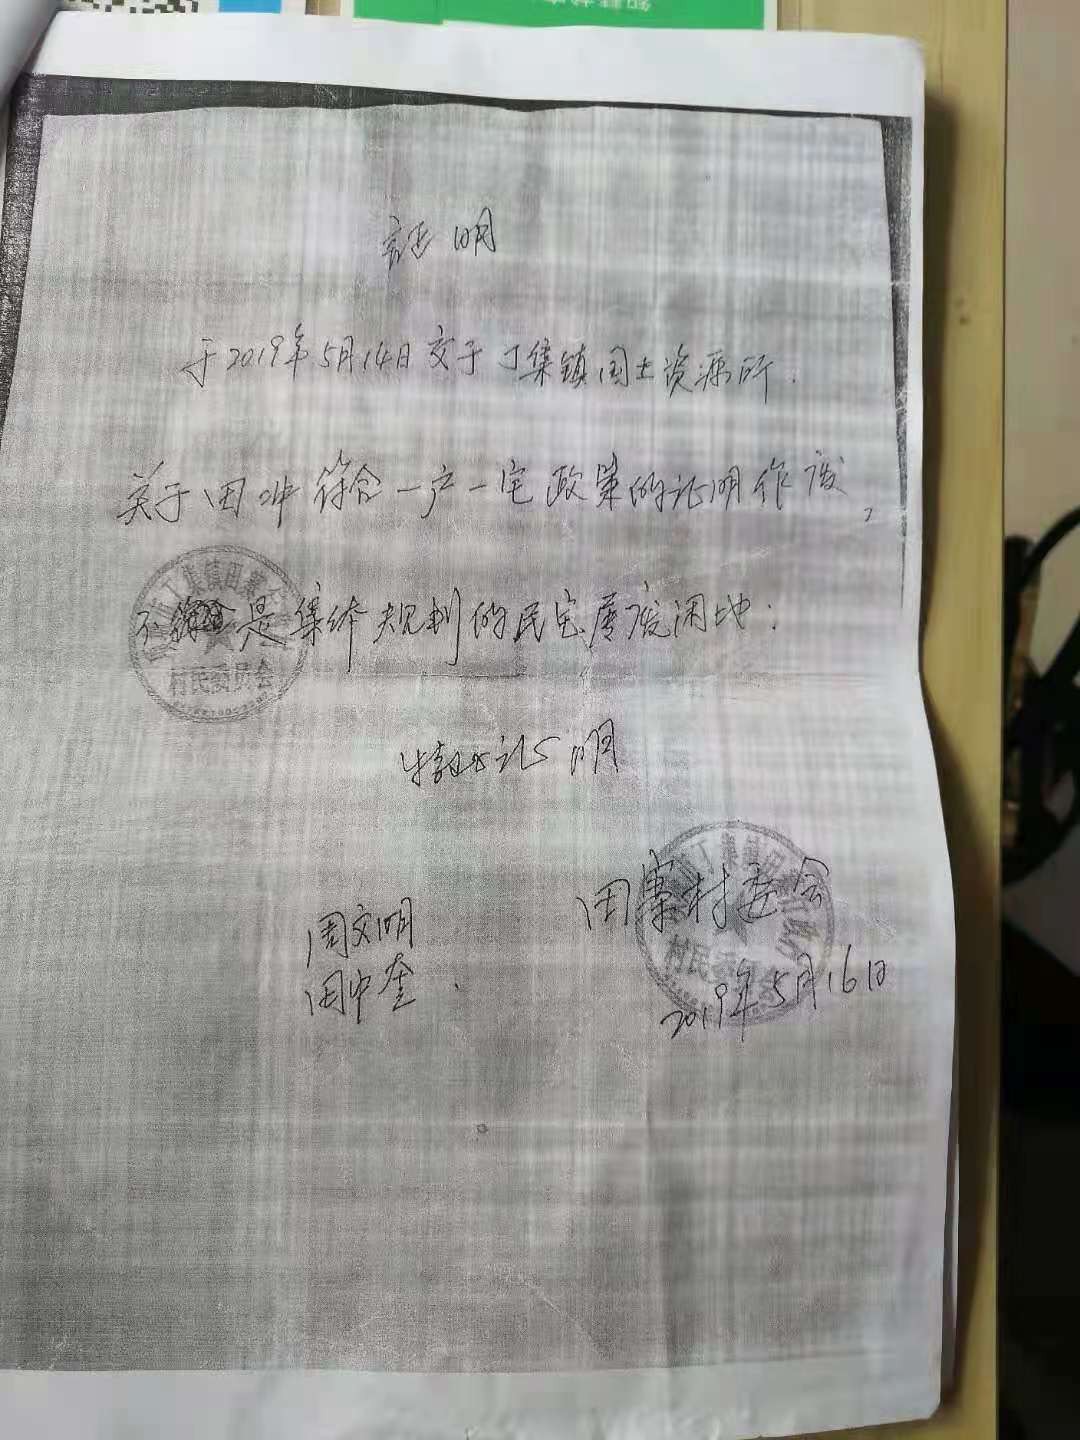 证明
于2019年5月14日交于丁集镇国土资源所.
关于田冲符合一户一宅政策的证明作废,
不 是集体规划的民宅属废闲地:
特此证明
田寨村委会
周文明
田中奎.
2019年5月16日
丁集镇田寨
村民委员会
丁集镇田寨
村民委员会